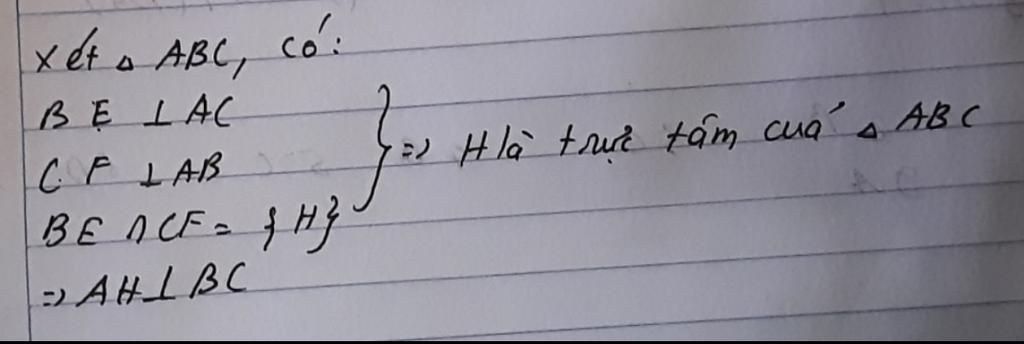 Xét △ ABC, có:
BE ⊥ AC
CF ⊥ AB
BE ∩ CF = {H}
} => H là trực tâm của △ ABC
=> AH ⊥ BC